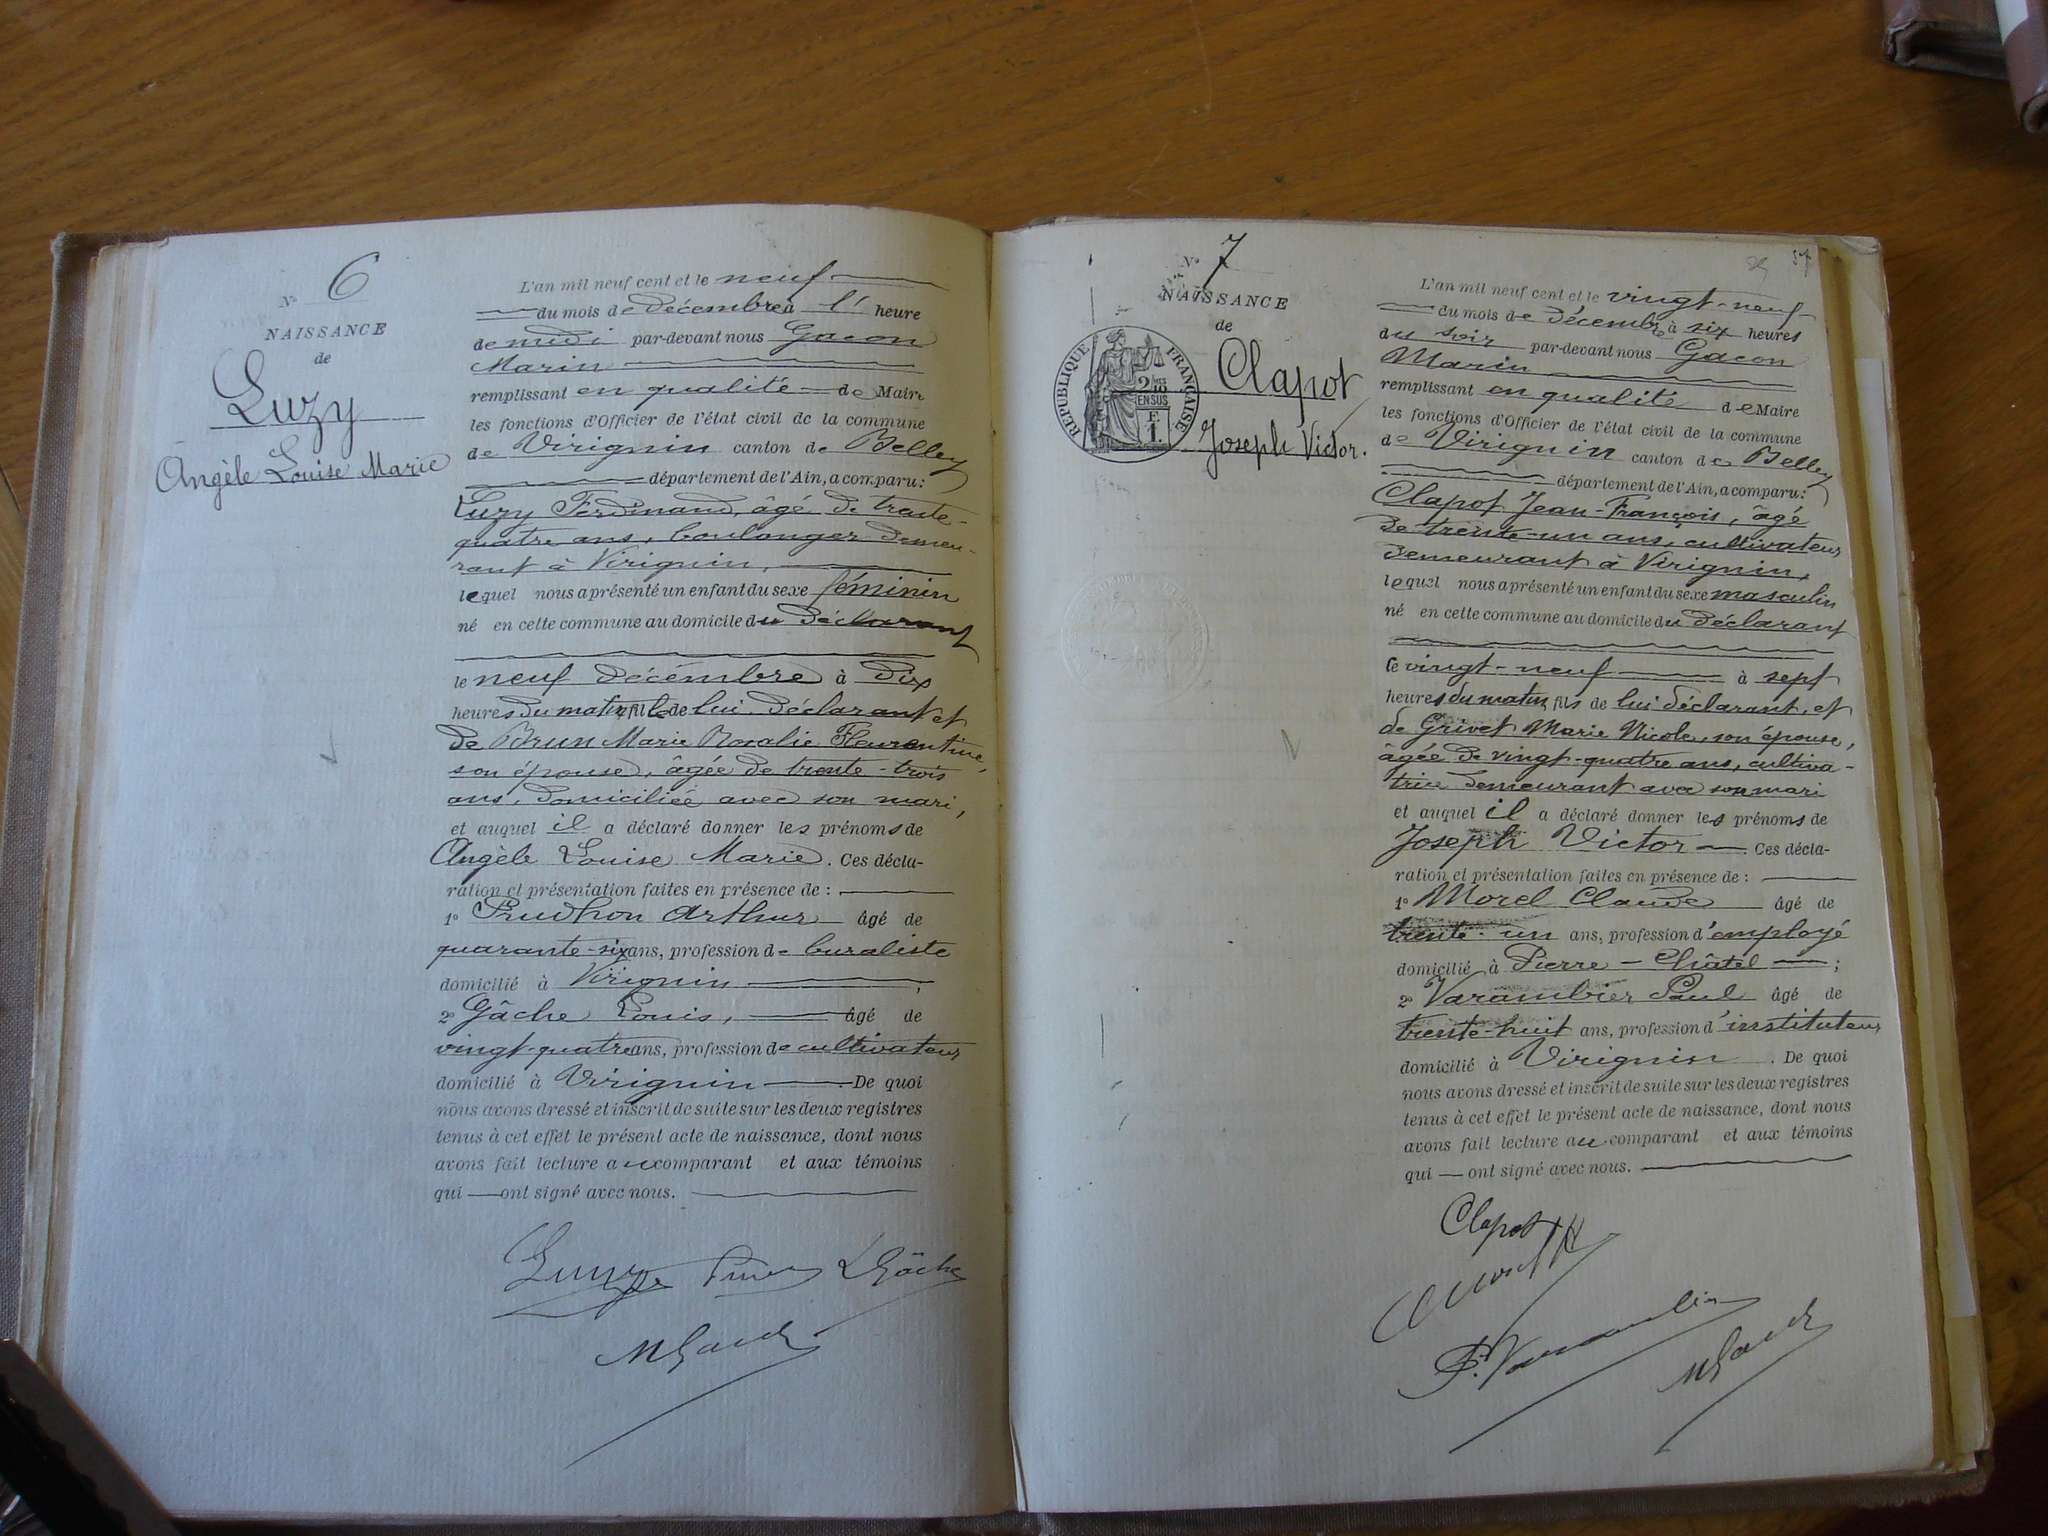 N° 6
NAISSANCE
de
Luzy
Angèle Louise Marie
L'an mil neuf cent et le neuf
du mois de décembre à l' heure
de midi par-devant nous Gacon
Marin
remplissant en qualité de Maire
les fonctions d'Officier de l'état civil de la commune
de Virignin canton de Belley
département de l'Ain, a comparu :
Luzy Ferdinand, âgé de trente-
quatre ans, boulanger demeu-
rant à Virignin,
lequel nous a présenté un enfant du sexe féminin
né en cette commune au domicile du déclarant
le neuf décembre à dix
heures du matin fille de lui déclarant et
de Brun Marie Rosalie Fleurentine,
son épouse, âgée de trente-trois
ans, domiciliée avec son mari,
et auquel il a déclaré donner les prénoms de
Angèle Louise Marie. Ces décla-
ration et présentation faites en présence de :
1° Prudhon Arthur âgé de
quarante-six ans, profession de buraliste
domicilié à Virignin ;
2° Gâche Louis, âgé de
vingt-quatre ans, profession de cultivateur
domicilié à Virignin De quoi
nous avons dressé et inscrit de suite sur les deux registres
tenus à cet effet le présent acte de naissance, dont nous
avons fait lecture au comparant et aux témoins
qui ont signé avec nous.
Luzy L Gâche
MGacon
N° 7
NAISSANCE
de
Clapot
Joseph Victor.
RÉPUBLIQUE FRANÇAISE
2/10 EN SUS
57
L'an mil neuf cent et le vingt-neuf
du mois de décembre à six heures
du soir par-devant nous Gacon
Marin
remplissant en qualité de Maire
les fonctions d'Officier de l'état civil de la commune
de Virignin canton de Belley
département de l'Ain, a comparu :
Clapot Jean-François, âgé
de trente-un ans, cultivateur
demeurant à Virignin,
lequel nous a présenté un enfant du sexe masculin
né en cette commune au domicile du déclarant
le vingt-neuf à sept
heures du matin fils de lui déclarant, et
de Grivet Marie Nicole, son épouse,
âgée de vingt-quatre ans, cultiva-
trice demeurant avec son mari
et auquel il a déclaré donner les prénoms de
Joseph Victor Ces décla-
ration et présentation faites en présence de :
1° Morel Claude âgé de
trente-un ans, profession d'employé
domicilié à Pierre-Châtel ;
2° Varambier Paul âgé de
trente-huit ans, profession d'instituteur
domicilié à Virignin. De quoi
nous avons dressé et inscrit de suite sur les deux registres
tenus à cet effet le présent acte de naissance, dont nous
avons fait lecture au comparant et aux témoins
qui ont signé avec nous.
Clapot
P. Varambier
MGacon